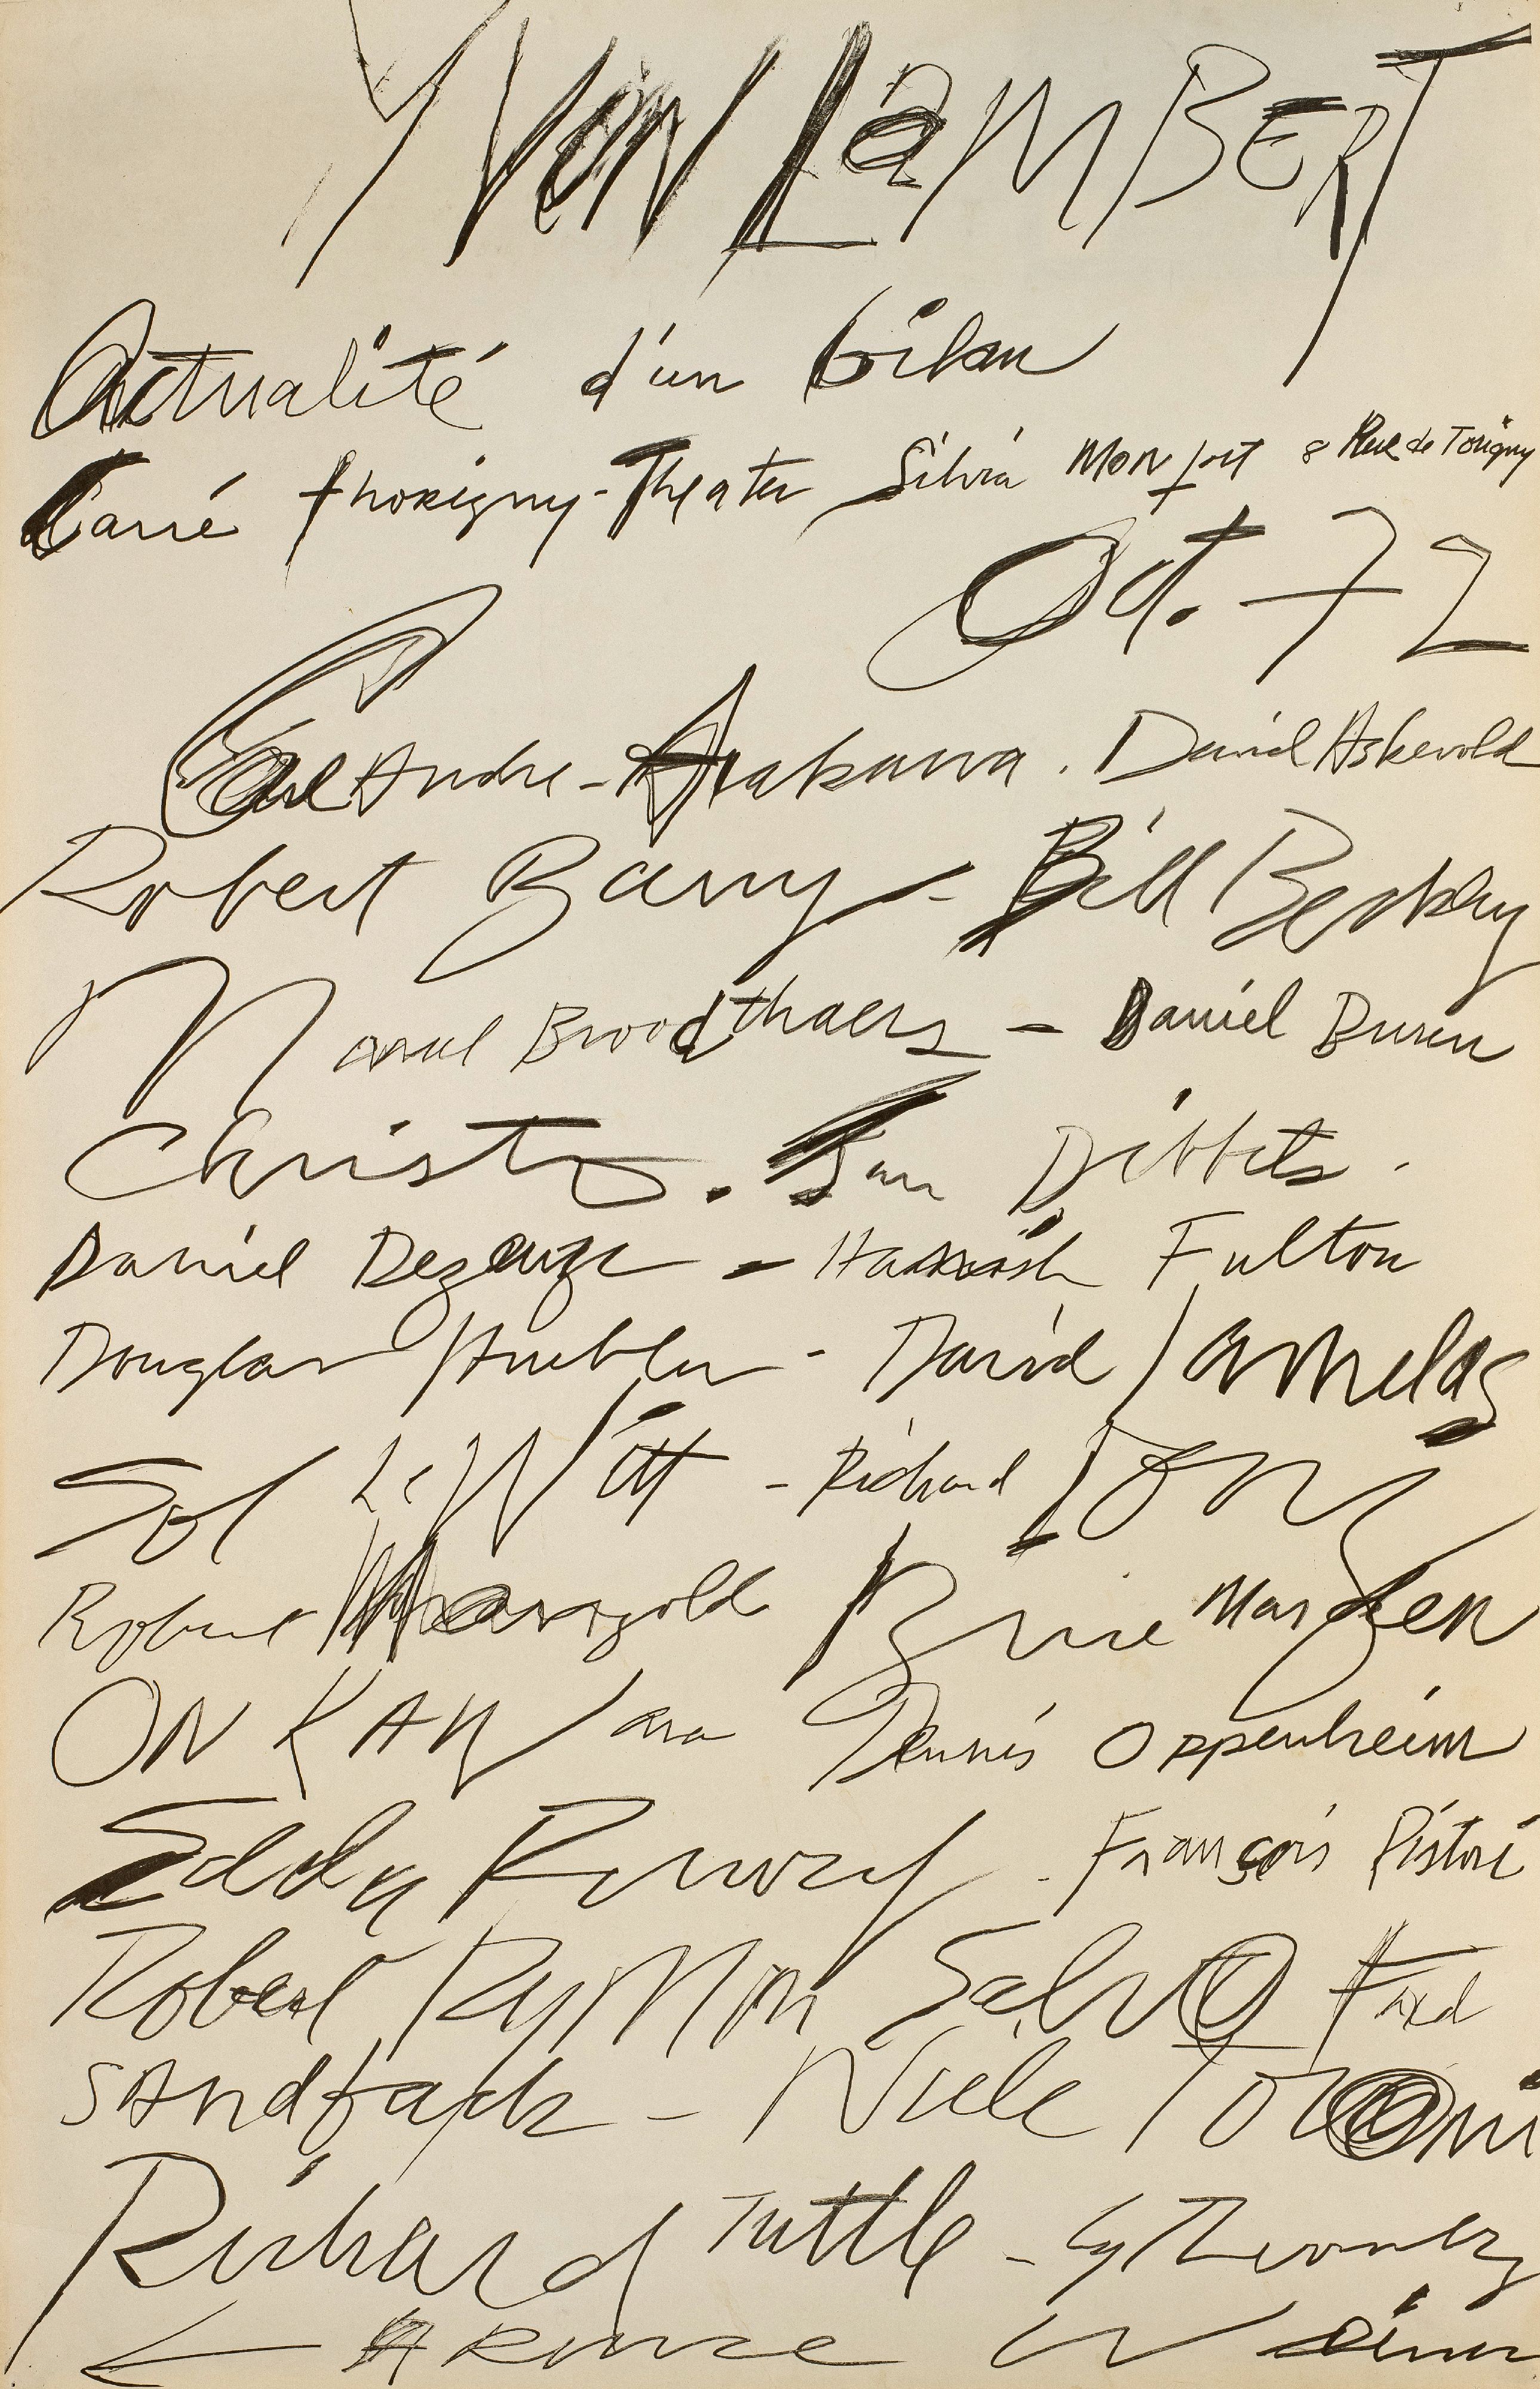 YVON LaMBERT
Actualité d'un bilan
Carré thorigny-Theater Silvia MONfort 8 Rue de Torigny
Oct. 72
Carl Andre - Arakawa. David Askevold
Robert Barry - Bill Beckley
Marcel Broodthaers - Daniel Buren
Christo. Jan Dibbets.
Daniel Dezeuze - Hamish Fulton
Douglas Huebler - David Lamelas
Sol LeWitt - Richard Long
Robert Mangold Brice Marden
ON KAWara Dennis Oppenheim
Edda Renouf - François Ristori
Robert RyMan SalvO Fred
SAndback - Niele Toroni
Richard Tuttle - Cy Twombly
LAwrence Weiner